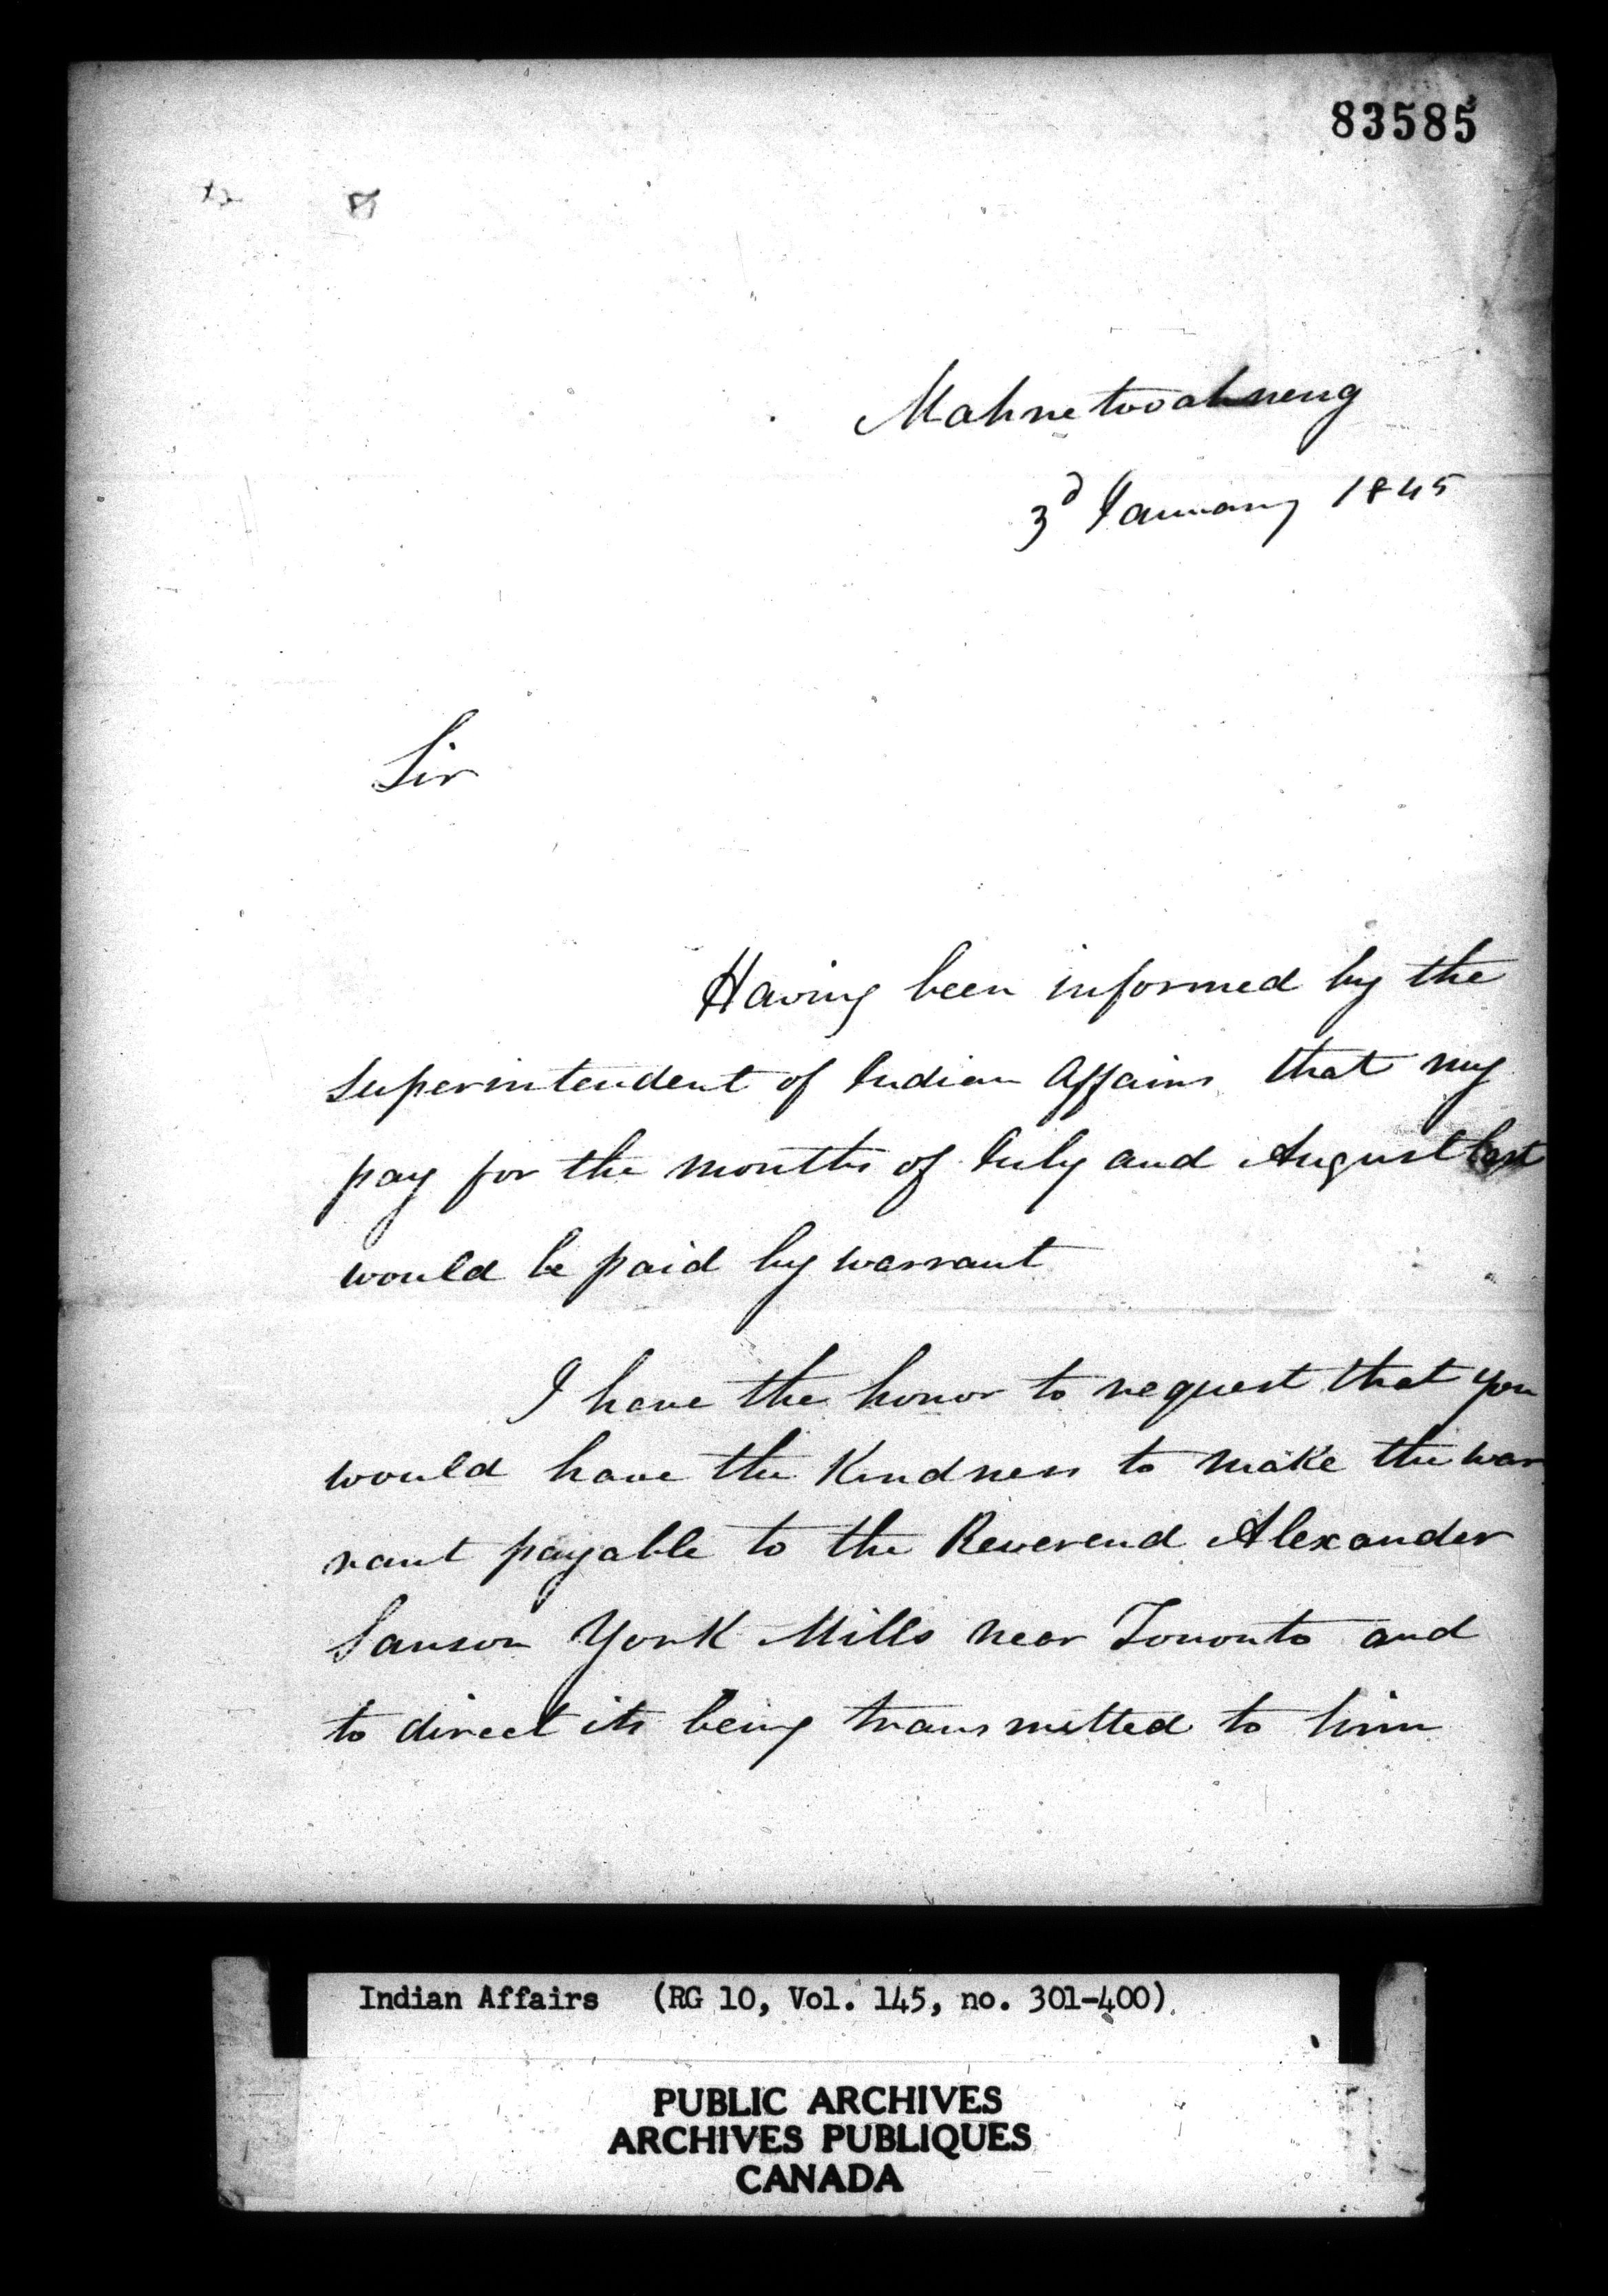 83585
Mahnetooahneng
3d January 1845
Sir
Having been informed by the
Superintendent of Indian Affairs that my
pay for the months of July and August last
would be paid by warrant
I have the honor to request that you
would have the Kindness to make the war
rant payable to the Reverend Alexander
Sanson York Mills near Toronto and
to direct its being transmitted to him
Indian Affairs (RG 10, Vol. 145, no. 301-400)
PUBLIC ARCHIVES
ARCHIVES PUBLIQUES
CANADA